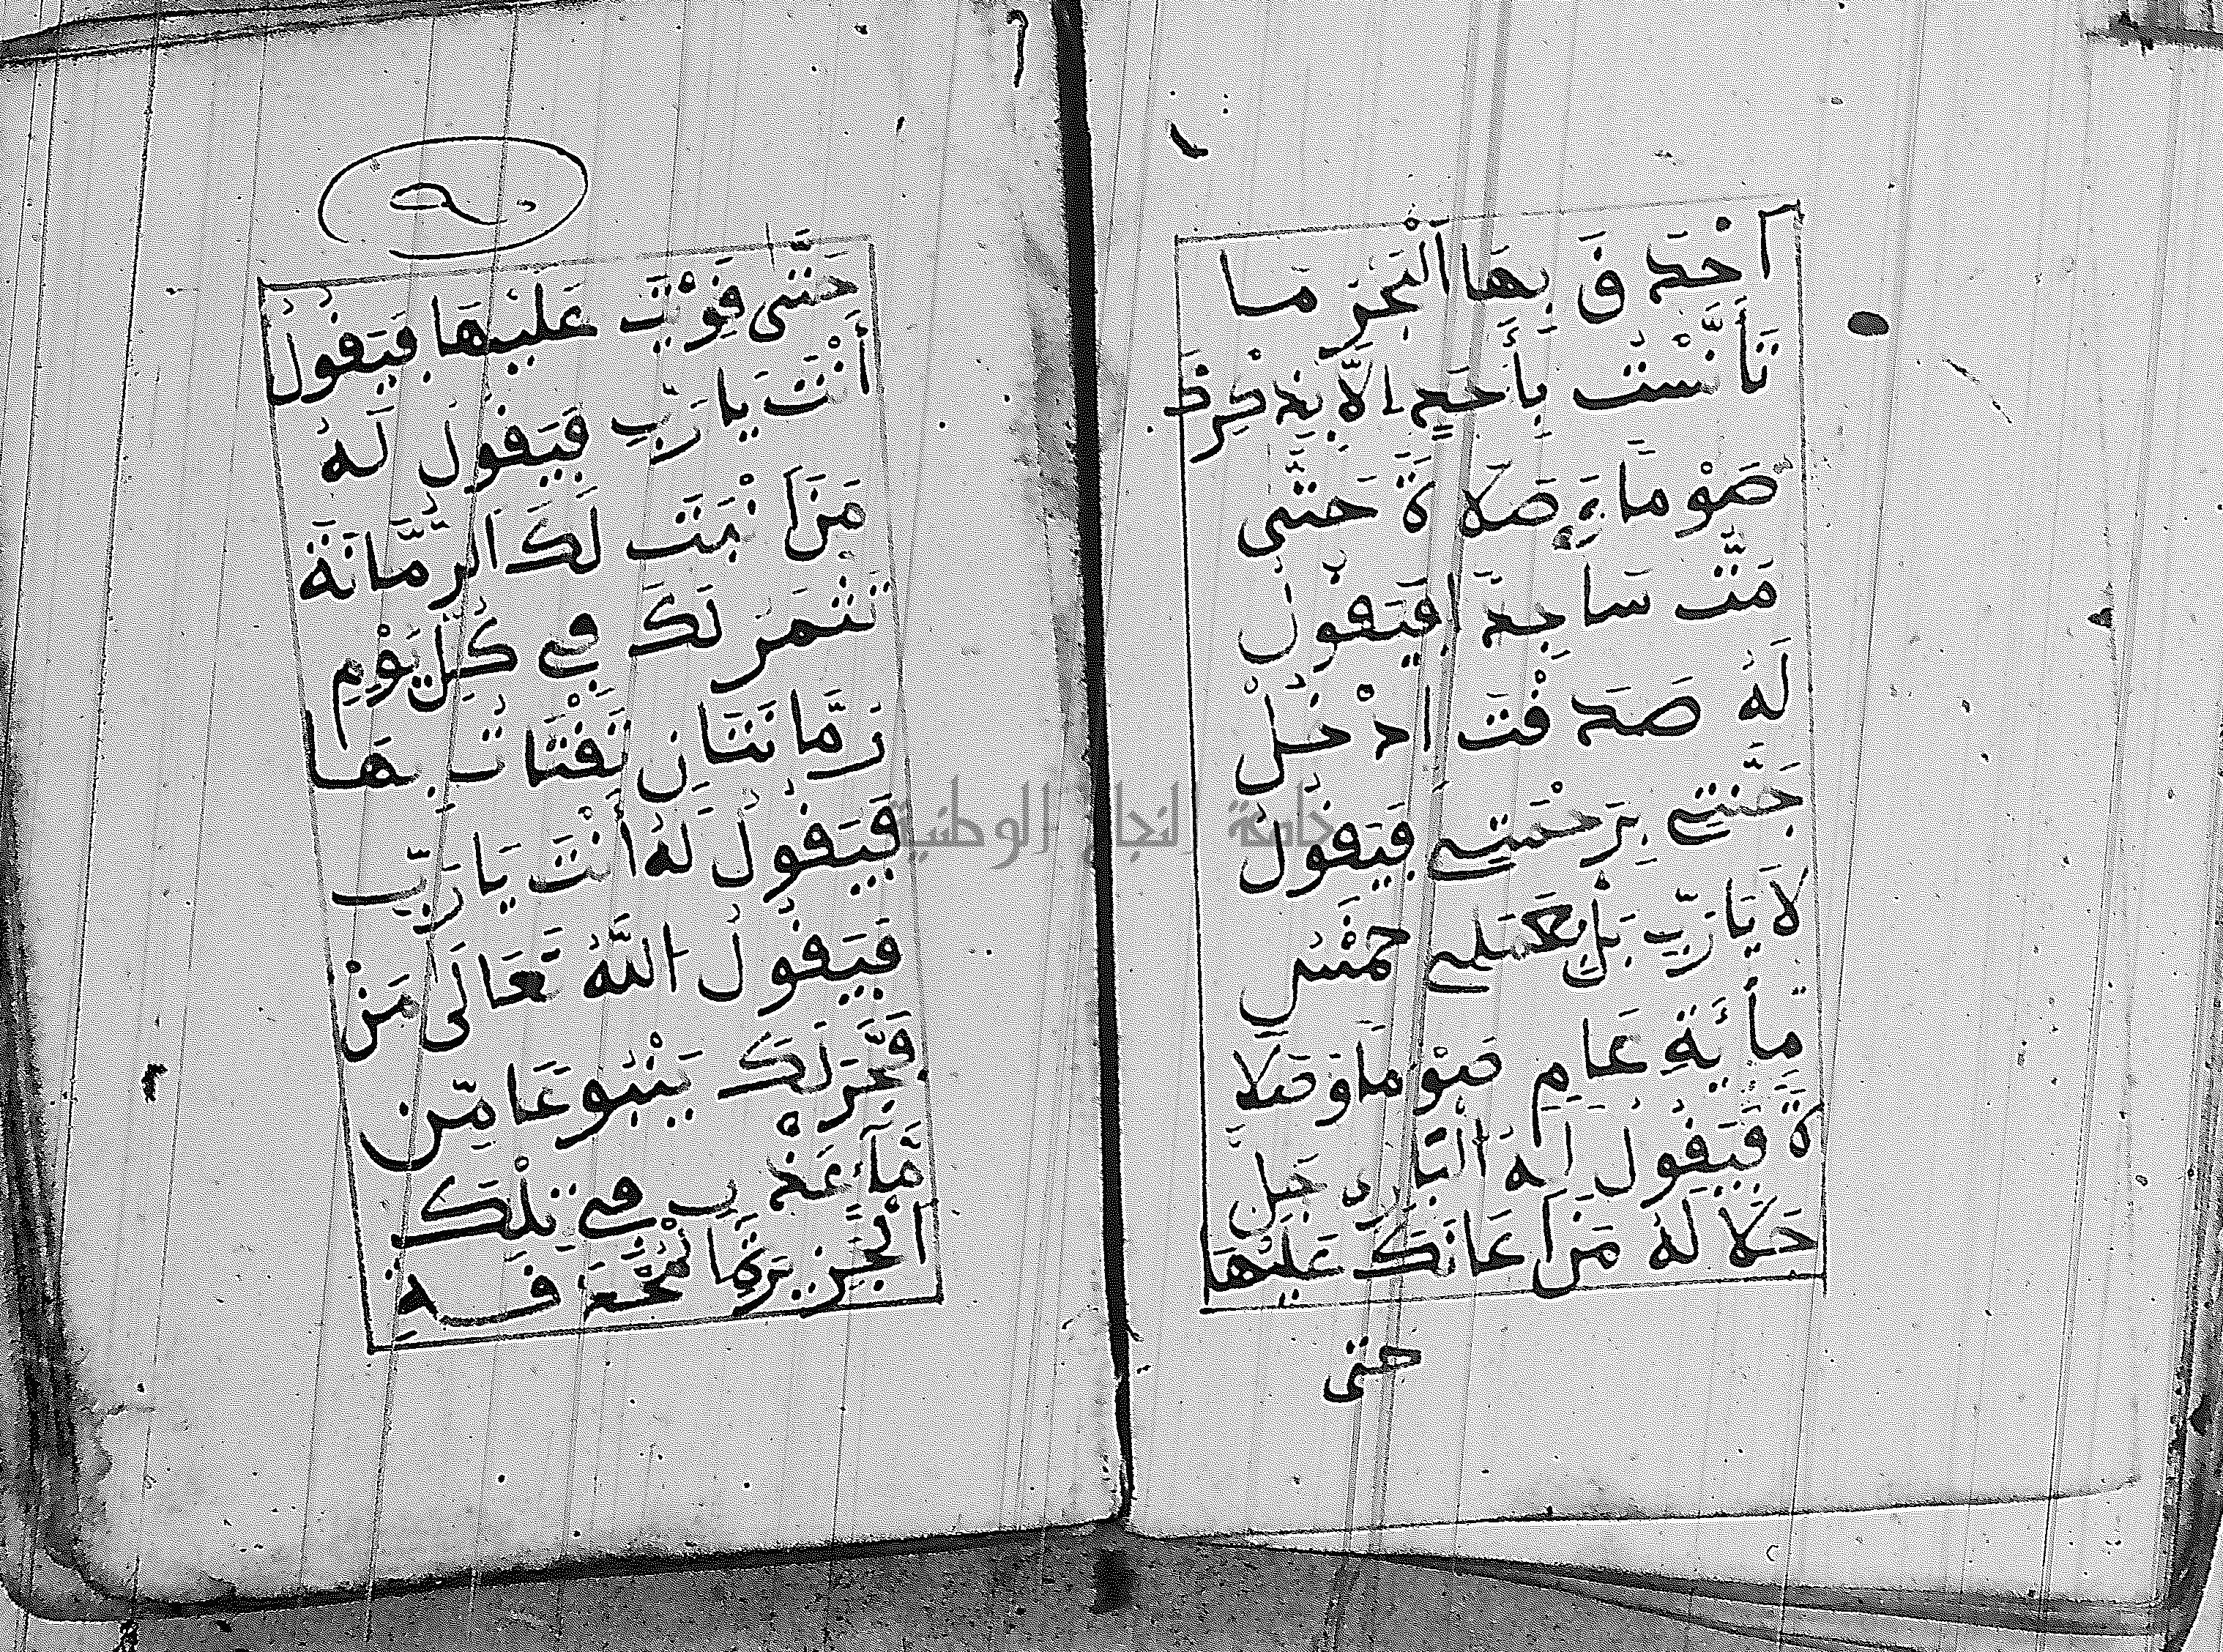 اَحْدَقَ بِهَا الْبَحْرِ مَا
تَأَنَّسْتُ بِأَحَدٍ اِلَّا بِذِكْرِكَ
صَوْمًا وَصَلَاةً حَتَّى
مَتُّ سَاجِدًا فَيَقُولُ
لَهُ صَدَقْتَ ادْخُلْ
جَنَّتِي بِرَحْمَتِي فَيَقُولُ
لَا يَارَبِّ بَلْ بِعَمَلِي خَمْسُ
مِأْيَةِ عَامٍ صَوْمًا وَصَلَا
ةً فَيَقُولُ لَهُ الْبَارِي جَلَّ
جَلَالُهُ مَنْ اَعَانَكَ عَلَيْهَا
حتى
حَتَّى قَوِيْتَ عَلَيْهَا فَيَقُولُ
أَنْتَ يَا رَبِّ فَيَقُولُ لَهُ
مَنْ اَنْبَتَ لَكَ الرُّمَّانَةَ
تَثْمَرُ لَكَ فِي كُلِّ يَوْمٍ
رُمَّانَتَانِ تَقْتَاتُ بِهَا
فَيَقُولُ لَهُ أَنْتَ يَا رَبِّ
فَيَقُولُ اللَّهُ تَعَالَى مَنْ
فَجَّرَ لَكَ يَنْبُوعًا مِّن
مَّآءٍ عَذْبٍ فِي تِلْكَ
الْجَزِيرَةِ
جامعة النجاح الوطنية